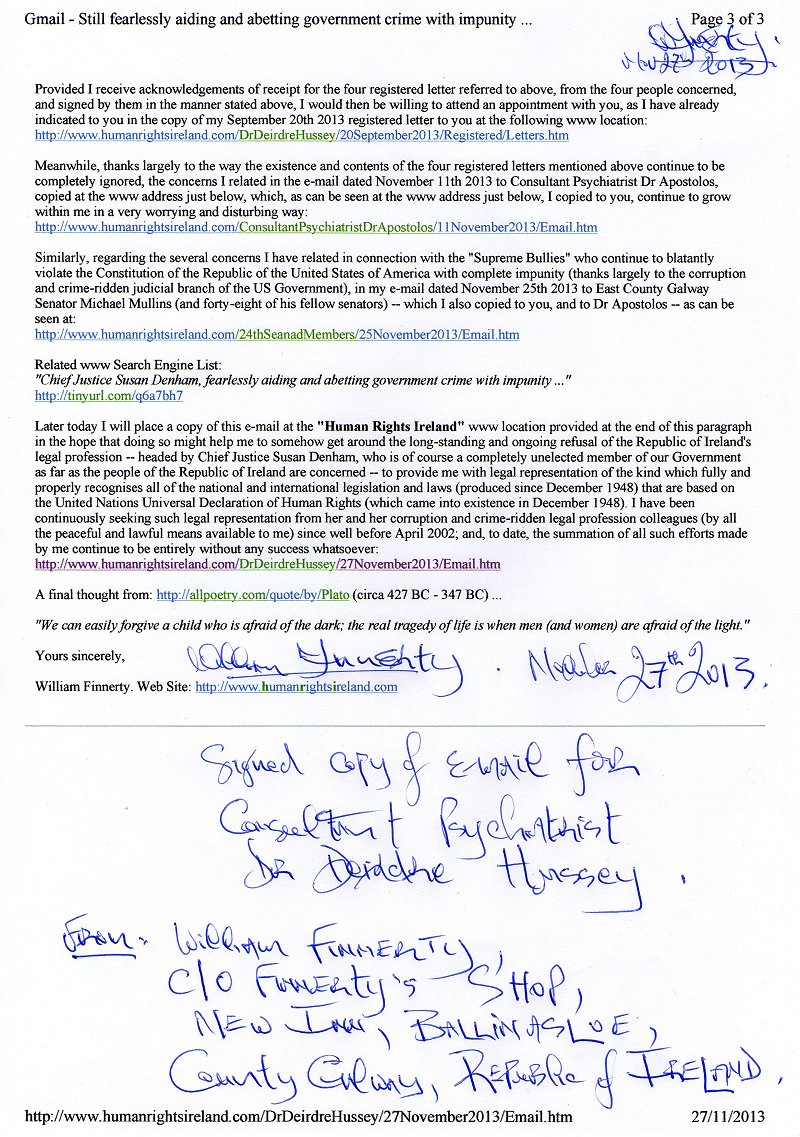 Gmail - Still fearlessly aiding and abetting government crime with impunity ...
Page 3 of 3
Nov 27th 2013
Provided I receive acknowledgements of receipt for the four registered letter referred to above, from the four people concerned,
and signed by them in the manner stated above, I would then be willing to attend an appointment with you, as I have already
indicated to you in the copy of my September 20th 2013 registered letter to you at the following www location:
http://www.humanrightsireland.com/DrDeirdreHussey/20September2013/Registered/Letters.htm
Meanwhile, thanks largely to the way the existence and contents of the four registered letters mentioned above continue to be
completely ignored, the concerns I related in the e-mail dated November 11th 2013 to Consultant Psychiatrist Dr Apostolos,
copied at the www address just below, which, as can be seen at the www address just below, I copied to you, continue to grow
within me in a very worrying and disturbing way:
http://www.humanrightsireland.com/ConsultantPsychiatristDrApostolos/11November2013/Email.htm
Similarly, regarding the several concerns I have related in connection with the "Supreme Bullies" who continue to blatantly
violate the Constitution of the Republic of the United States of America with complete impunity (thanks largely to the corruption
and crime-ridden judicial branch of the US Government), in my e-mail dated November 25th 2013 to East County Galway
Senator Michael Mullins (and forty-eight of his fellow senators) -- which I also copied to you, and to Dr Apostolos -- as can be
seen at:
http://www.humanrightsireland.com/24thSeanadMembers/25November2013/Email.htm
Related www Search Engine List:
"Chief Justice Susan Denham, fearlessly aiding and abetting government crime with impunity ..."
http://tinyurl.com/q6a7bh7
Later today I will place a copy of this e-mail at the "Human Rights Ireland" www location provided at the end of this paragraph
in the hope that doing so might help me to somehow get around the long-standing and ongoing refusal of the Republic of Ireland's
legal profession -- headed by Chief Justice Susan Denham, who is of course a completely unelected member of our Government
as far as the people of the Republic of Ireland are concerned -- to provide me with legal representation of the kind which fully and
properly recognises all of the national and international legislation and laws (produced since December 1948) that are based on
the United Nations Universal Declaration of Human Rights (which came into existence in December 1948). I have been
continuously seeking such legal representation from her and her corruption and crime-ridden legal profession colleagues (by all
the peaceful and lawful means available to me) since well before April 2002; and, to date, the summation of all such efforts made
by me continue to be entirely without any success whatsoever:
http://www.humanrightsireland.com/DrDeirdreHussey/27November2013/Email.htm
A final thought from: http://allpoetry.com/quote/by/Plato (circa 427 BC - 347 BC) ...
"We can easily forgive a child who is afraid of the dark; the real tragedy of life is when men (and women) are afraid of the light."
Yours sincerely,
William Finnerty. November 27th 2013.
William Finnerty. Web Site: http://www.humanrightsireland.com
Signed copy of E-mail for
Consultant Psychiatrist
Dr Deirdre Hussey.
From:- William Finnerty,
C/O Finnerty's Shop,
New Inn, Ballinasloe,
County Galway, Republic of Ireland.
http://www.humanrightsireland.com/DrDeirdreHussey/27November2013/Email.htm
27/11/2013